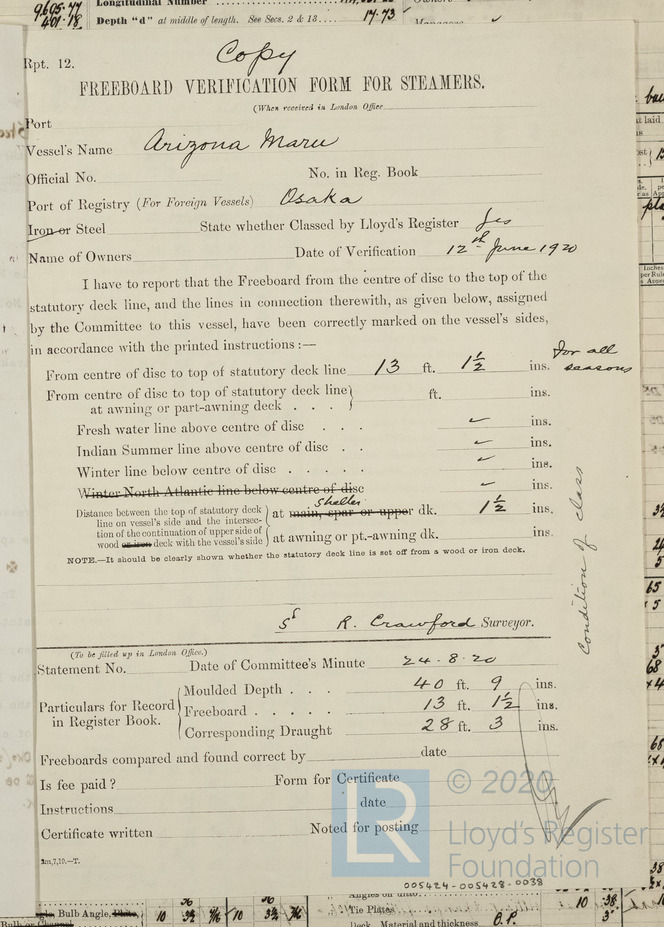 9605.77 Longitudinal Number
401.18 Depth "d" at middle of length. See Secs. 2 & 13.... 17.73
Copy
Rpt. 12.
FREEBOARD VERIFICATION FORM FOR STEAMERS.
(When received in London Office
Port
Vessel's Name Arizona Maru
Official No. No. in Reg. Book
Port of Registry (For Foreign Vessels) Osaka
Iron or Steel State whether Classed by Lloyd's Register Yes
Name of Owners Date of Verification 12th June 1920
I have to report that the Freeboard from the centre of disc to the top of the
statutory deck line, and the lines in connection therewith, as given below, assigned
by the Committee to this vessel, have been correctly marked on the vessel's sides,
in accordance with the printed instructions :—
From centre of disc to top of statutory deck line 13 ft. 1½ ins. for all seasons
From centre of disc to top of statutory deck line
at awning or part-awning deck . . . ft. ins.
Fresh water line above centre of disc . . . ins.
Indian Summer line above centre of disc . . ins.
Winter line below centre of disc . . . . . ins.
Winter North Atlantic line below centre of disc ins.
Distance between the top of statutory deck
line on vessel's side and the intersec-
tion of the continuation of upper side of
wood or iron deck with the vessel's side
Shelter
at main, spar or upper dk. 1½ ins.
at awning or pt.-awning dk. ins.
NOTE.—It should be clearly shown whether the statutory deck line is set off from a wood or iron deck.
Condition of class
R. Crawford Surveyor.
(To be filled up in London Office.)
Statement No. Date of Committee's Minute 24.8.20
Particulars for Record
in Register Book.
Moulded Depth . . . 40 ft. 9 ins.
Freeboard . . . . . 13 ft. 1½ ins.
Corresponding Draught 28 ft. 3 ins.
Freeboards compared and found correct by date
Is fee paid ? Form for Certificate
Instructions date
Certificate written Noted for posting
2m,7,19.—T.
LR
© 2020
Lloyd's Register
Foundation
005424-005428-0038
Bulb Angle, Tie Plates
Deck. Material and thickness O.P.